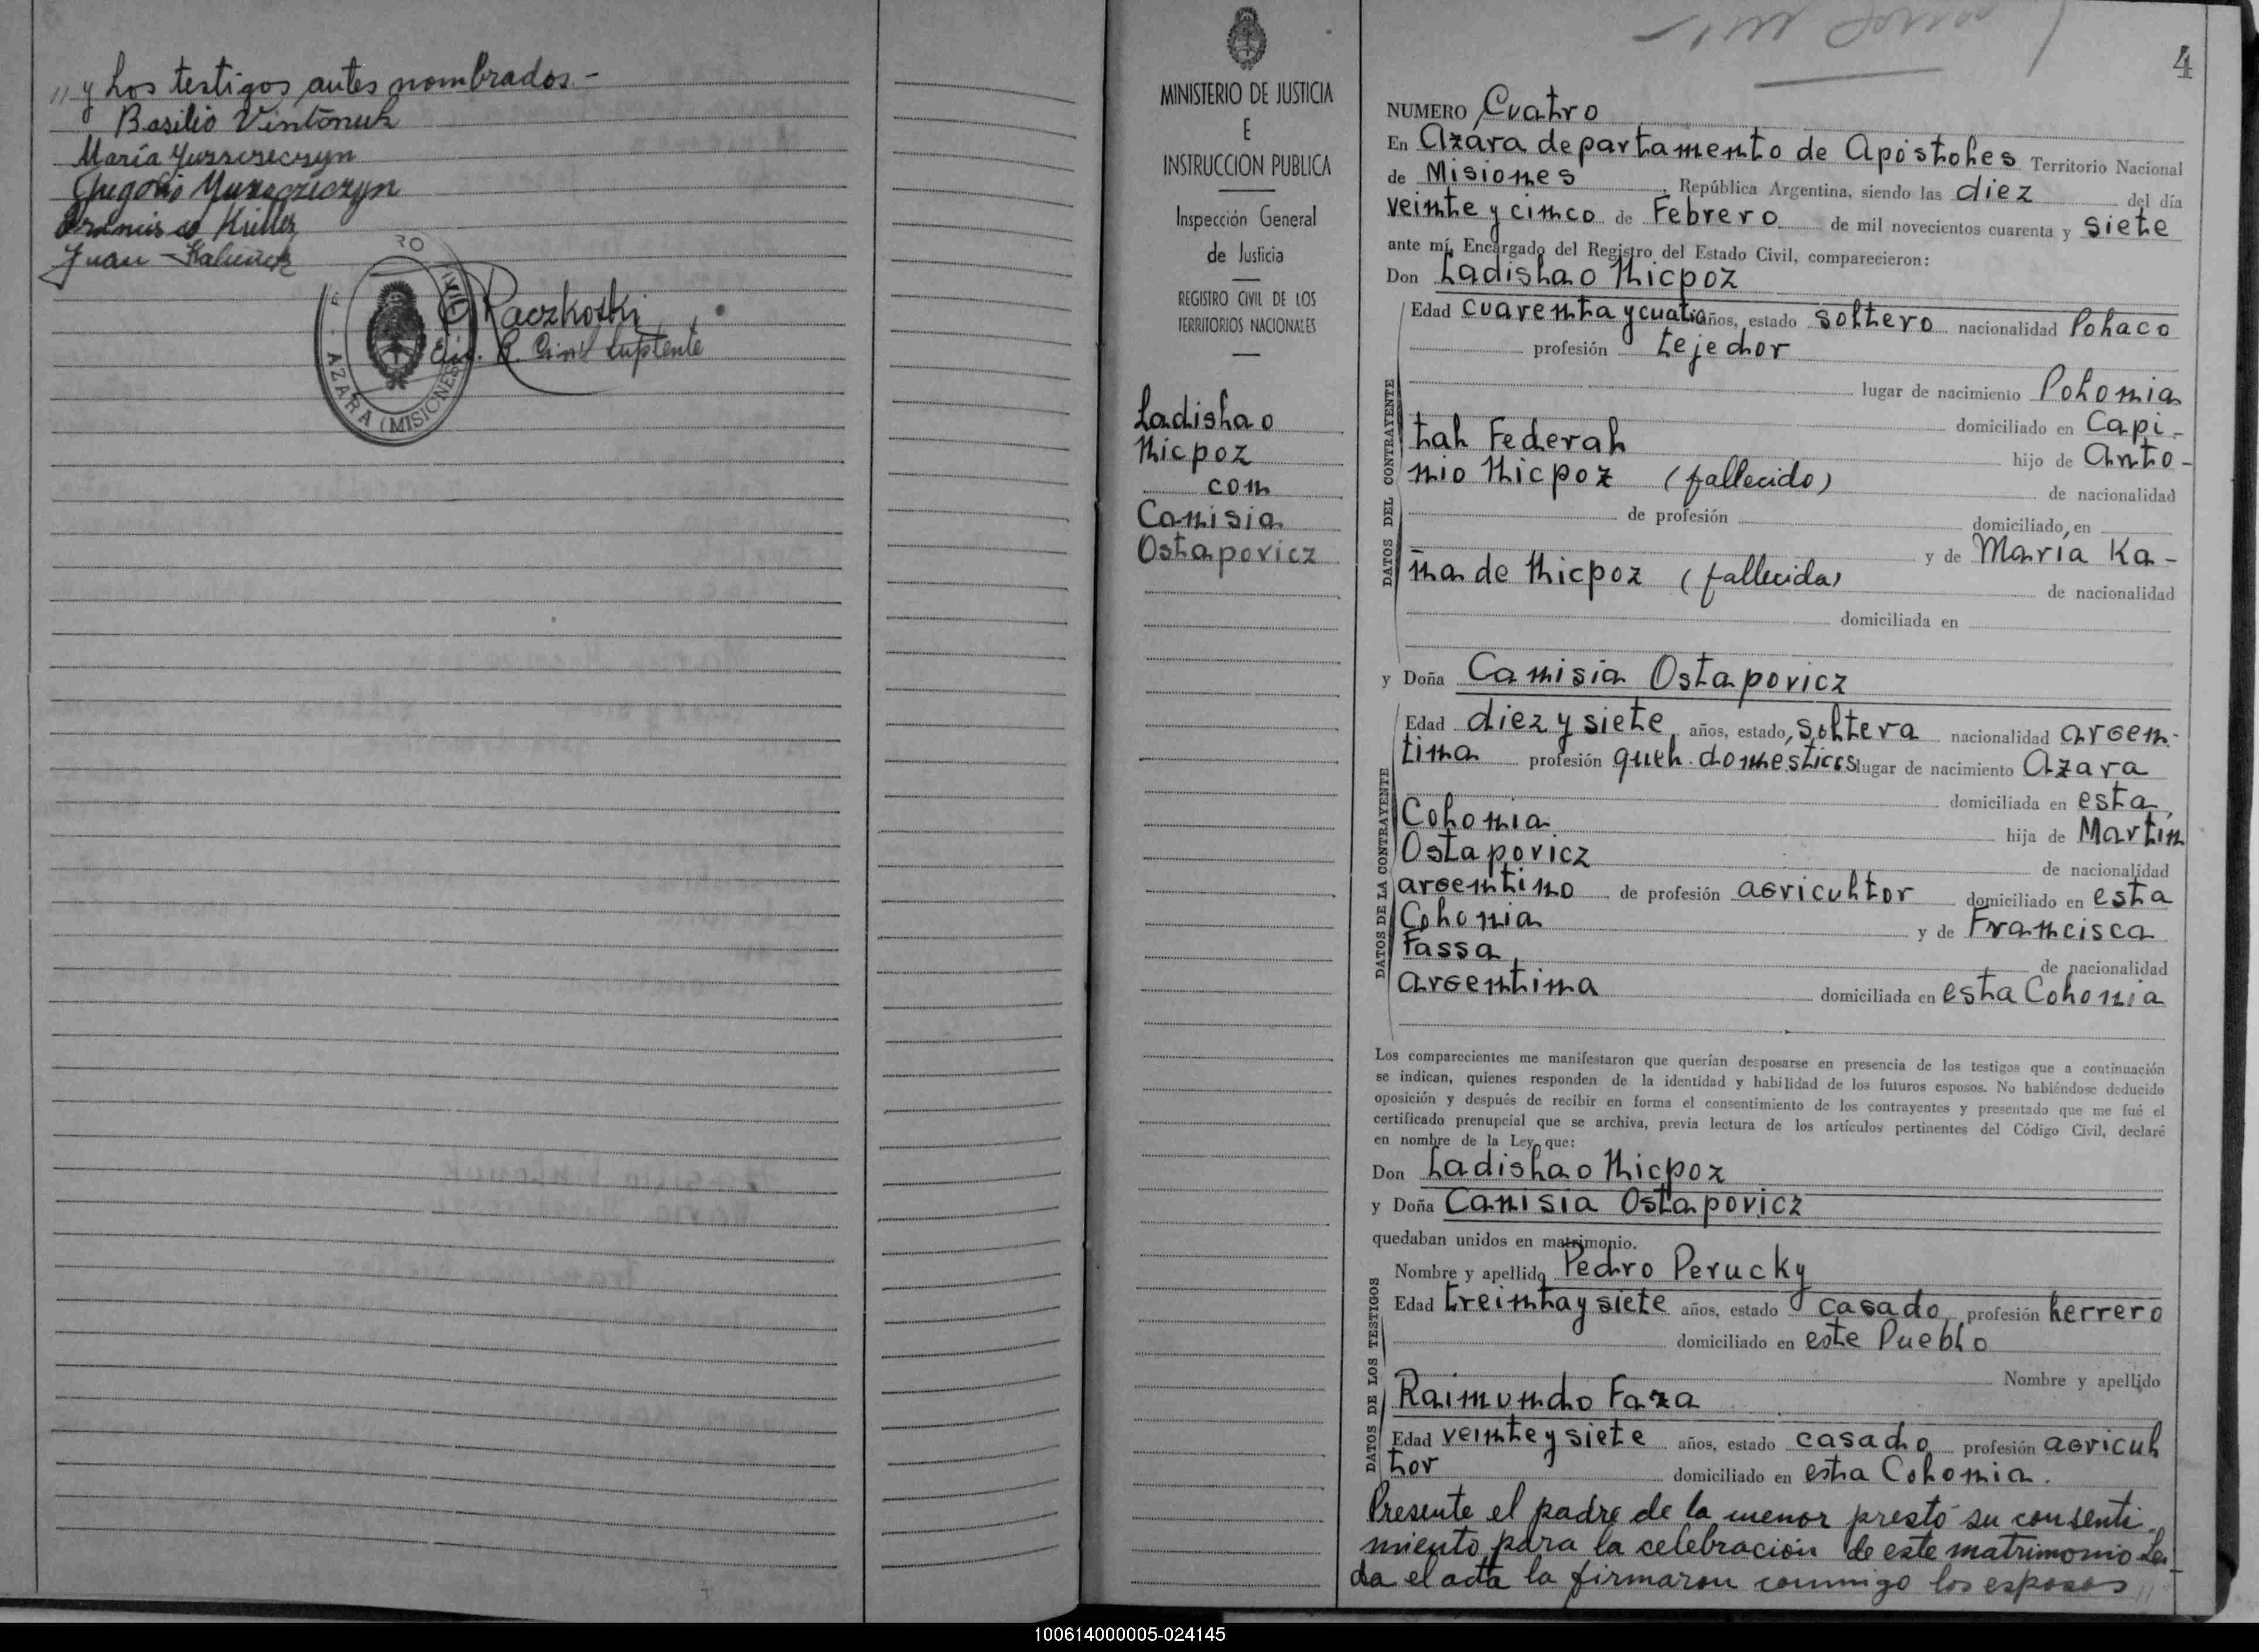 " y Los testigos antes nombrados.-
Basilio Vintoñuk
María Yuszczeczyn
Gregorio Yuszczeczyn
Kuiller
Juan
RO CIVIL
AZARA (MISIONES
Raczkoski
Enc. R. Civil Suptente
4
MINISTERIO DE JUSTICIA
E
INSTRUCCION PUBLICA
Inspección General
de Justicia
REGISTRO CIVIL DE LOS
TERRITORIOS NACIONALES
Ladislao
Nicpoz
con
Canisia
Ostapovicz
NUMERO Cuatro
En Azara departamento de Apóstoles Territorio Nacional
de Misiones, República Argentina, siendo las diez del día
veinte y cinco de Febrero de mil novecientos cuarenta y siete
ante mí, Encargado del Registro del Estado Civil, comparecieron:
Don Ladislao Nicpoz
DATOS DEL CONTRAYENTE
Edad cuarenta y cuatro años, estado soltero nacionalidad Polaco
profesión tejedor
lugar de nacimiento Polonia
domiciliado en Capi-
tal Federal
hijo de Anto-
nio Nicpoz (fallecido)
de nacionalidad
de profesión domiciliado en
y de María Ka-
ña de Nicpoz (fallecida)
de nacionalidad
domiciliada en
y Doña Canisia Ostapovicz
DATOS DE LA CONTRAYENTE
Edad diez y siete años, estado, soltera nacionalidad argen-
tina profesión queh. domesticos lugar de nacimiento Azara
domiciliada en esta
Colonia
hija de Martin
Ostapovicz
de nacionalidad
argentino de profesión agricultor domiciliado en esta
Colonia
y de Francisca
Fassa
de nacionalidad
argentina domiciliada en esta Colonia
Los comparecientes me manifestaron que querían desposarse en presencia de los testigos que a continuación
se indican, quienes responden de la identidad y habilidad de los futuros esposos. No habiéndose deducido
oposición y después de recibir en forma el consentimiento de los contrayentes y presentado que me fué el
certificado prenupcial que se archiva, previa lectura de los artículos pertinentes del Código Civil, declaré
en nombre de la Ley que:
Don Ladislao Nicpoz
y Doña Canisia Ostapovicz
quedaban unidos en matrimonio.
DATOS DE LOS TESTIGOS
Nombre y apellido Pedro Perucky
Edad treinta y siete años, estado casado profesión herrero
domiciliado en este Pueblo
Nombre y apellido
Raimundo Faza
Edad veinte y siete años, estado casado profesión agricul
tor domiciliado en esta Colonia.
Presente el padre de la menor prestó su consenti
miento para la celebración de este matrimonio Leí
da el acta la firmaron conmigo los esposos "
100614000005-024145